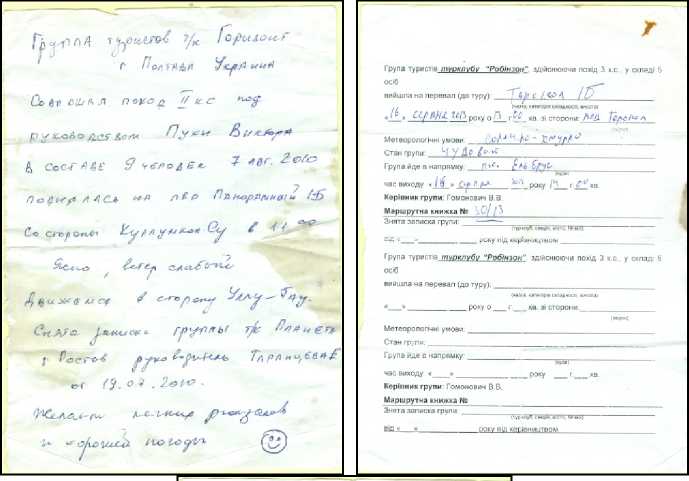 Группа туристов т/к Горизонт
г Полтава Украина
Совершая поход II кс под
руководством Пуки Виктора
в составе 9 человек 7 авг. 2010
поднялась на пер Панорамный 1Б
со стороны в 11 00
Ясно, ветер слабый
Движемся в сторону Уллу-Тау.
Снята записка группы т/к Планета
г Ростов руководитель
от 19.07.2010.
Желаем легких рюкзаков
и хорошей погоды
Група туристів турклубу "Робінзон", здійснюючи похід 3 к.с., у складі 6
осіб
вийшла на перевал (до туру) 1Б
(назва, категорія складності, висота)
«16» серпня 2013 року о 13 г. 00 хв. зі сторони
Метеорологічні умови:
Стан групи: чудовий
Група йде в напрямку: Ельбрус
час виходу «16» серпня року г. хв.
Керівник групи: Гомонович В.В.
Маршрутна книжка № 30/13
Знята записка групи:
(турклуб, секція, місто, №-ова)
від «___»____________ року під керівництвом
Група туристів турклубу "Робінзон", здійснюючи похід 3 к.с., у складі 6
осіб
вийшла на перевал (до туру).
(назва, категорія складності, висота)
«___»____________ року о ___ г. ___ хв. зі сторони
Метеорологічні умови:
Стан групи:
Група йде в напрямку:
час виходу «___»____________ року ___ г. ___ хв.
Керівник групи: Гомонович В.В.
Маршрутна книжка №
Знята записка групи:
(турклуб, секція, місто, №-ова)
від «___»____________ року під керівництвом